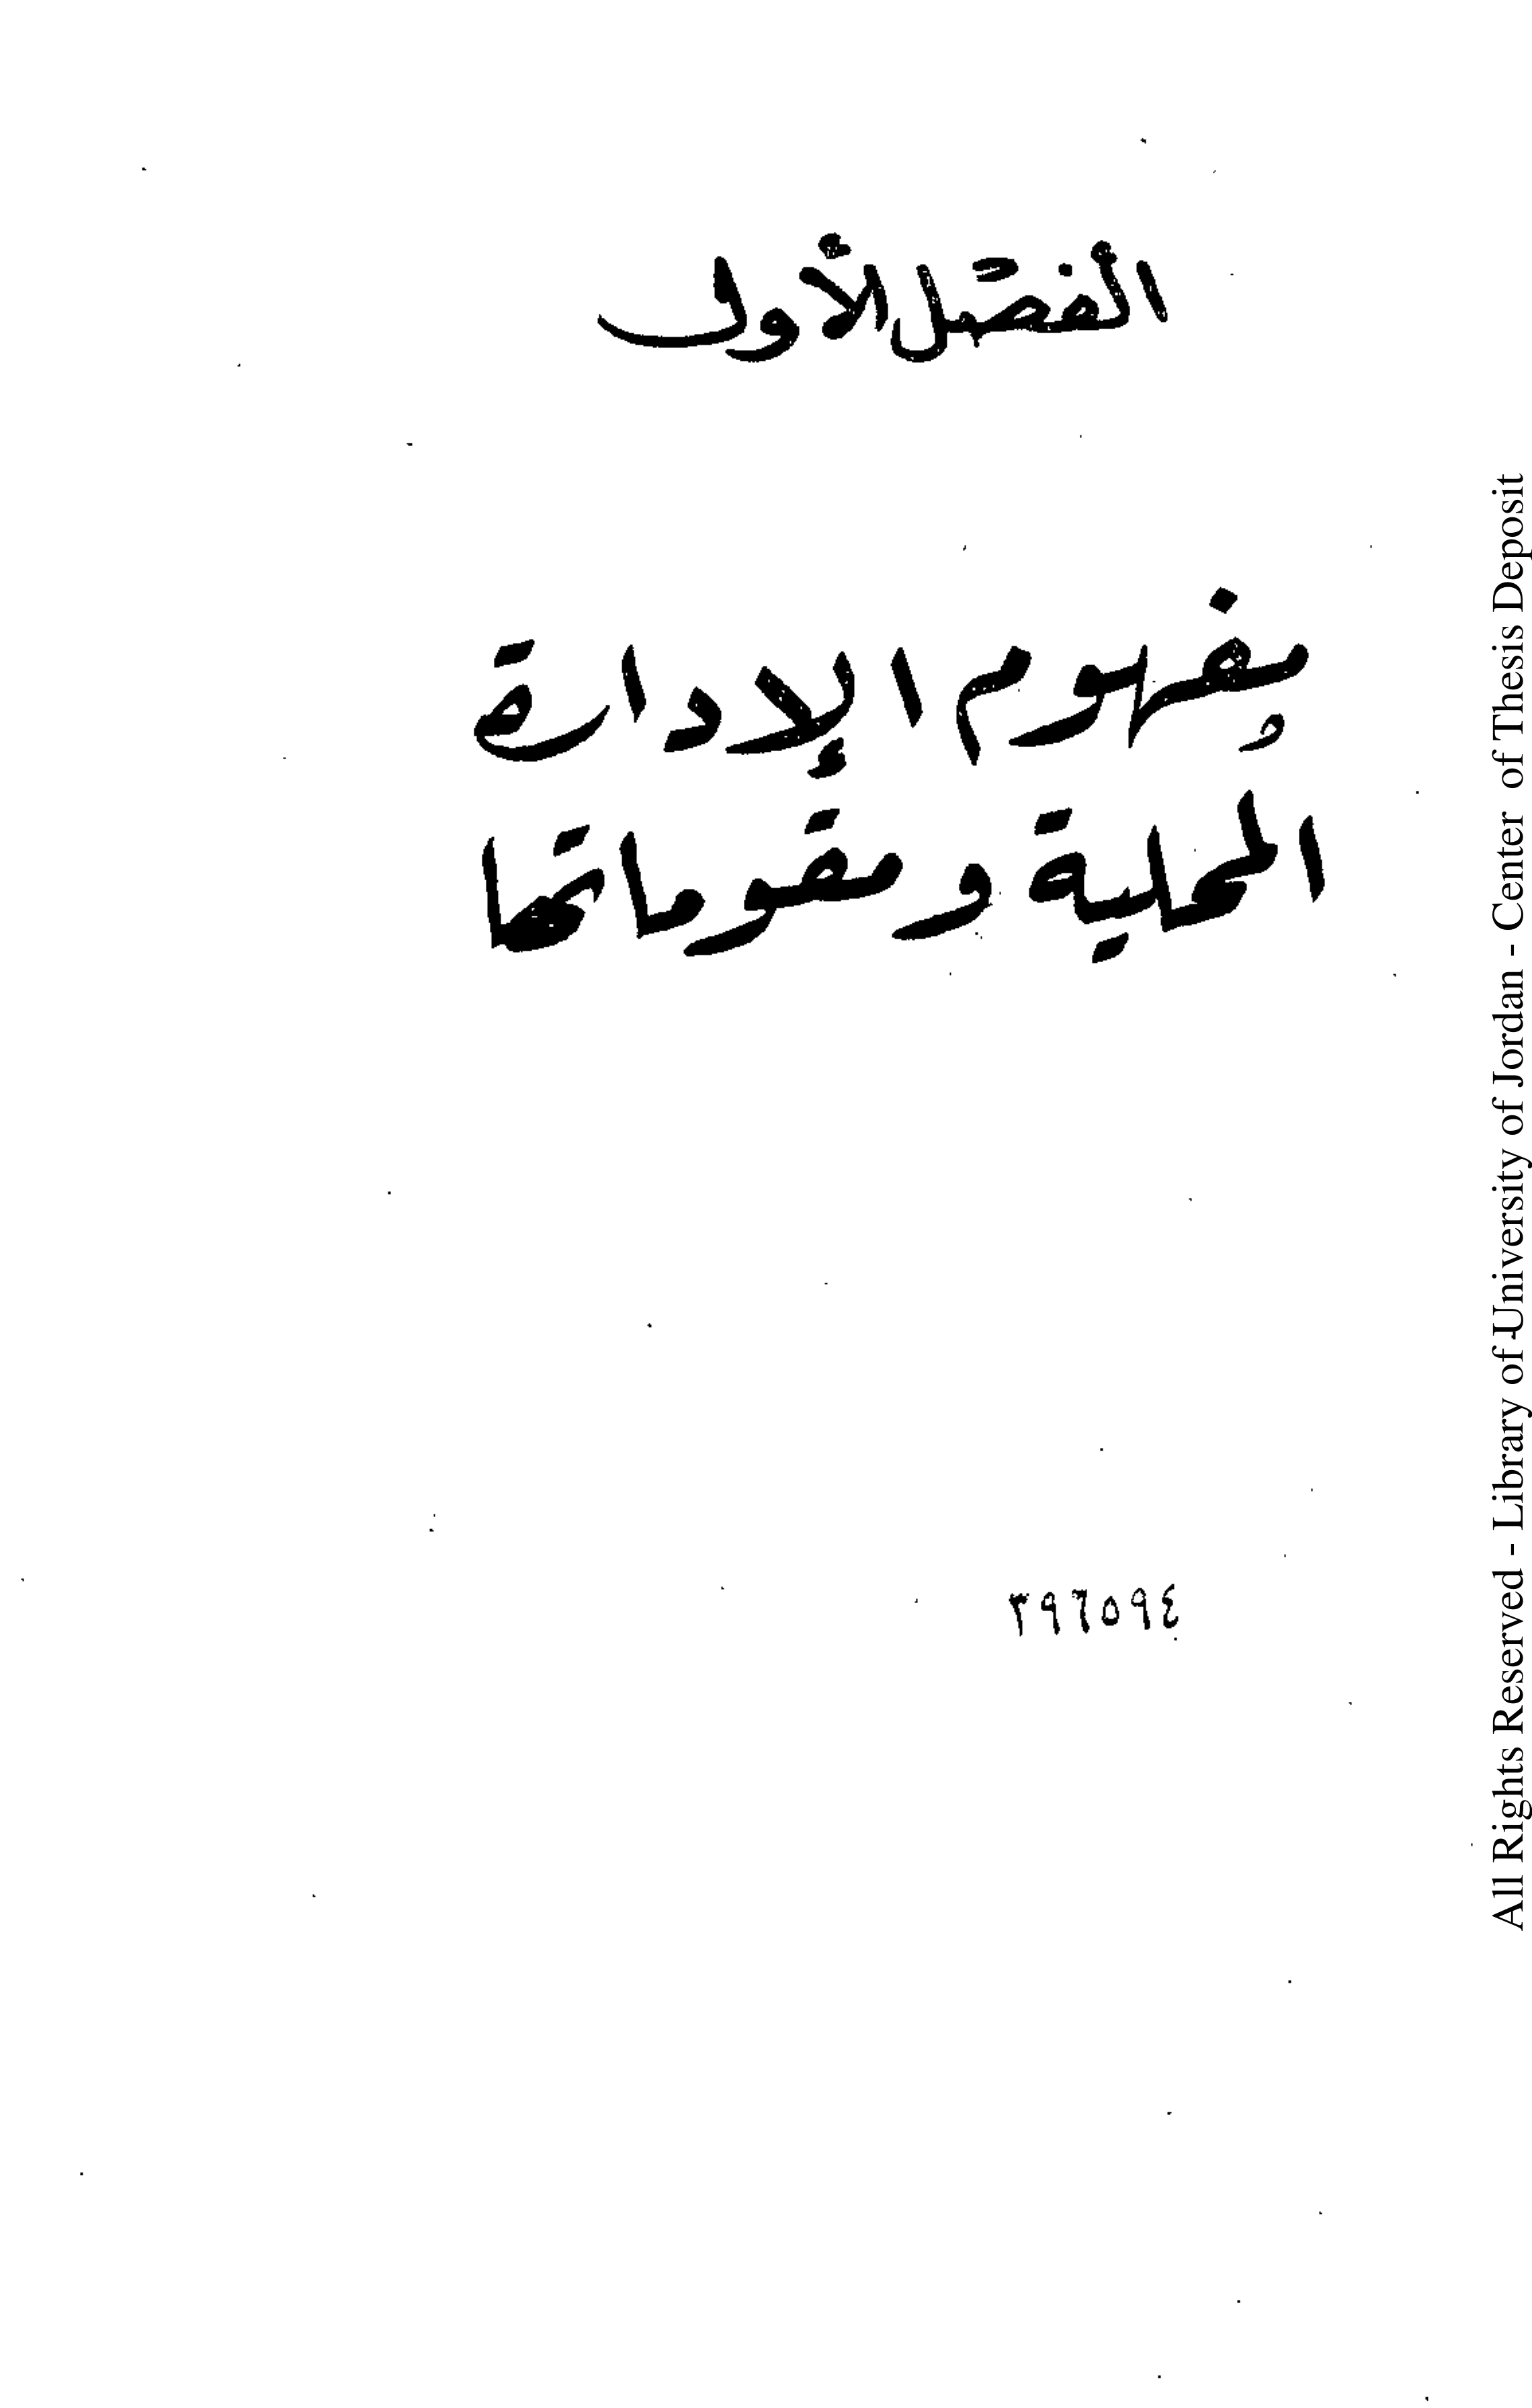 الفصل الأول
مفهوم الإدارة
المحلية ومقوماتها
٣٩٦٥٩٤
All Rights Reserved - Library of University of Jordan - Center of Thesis Deposit